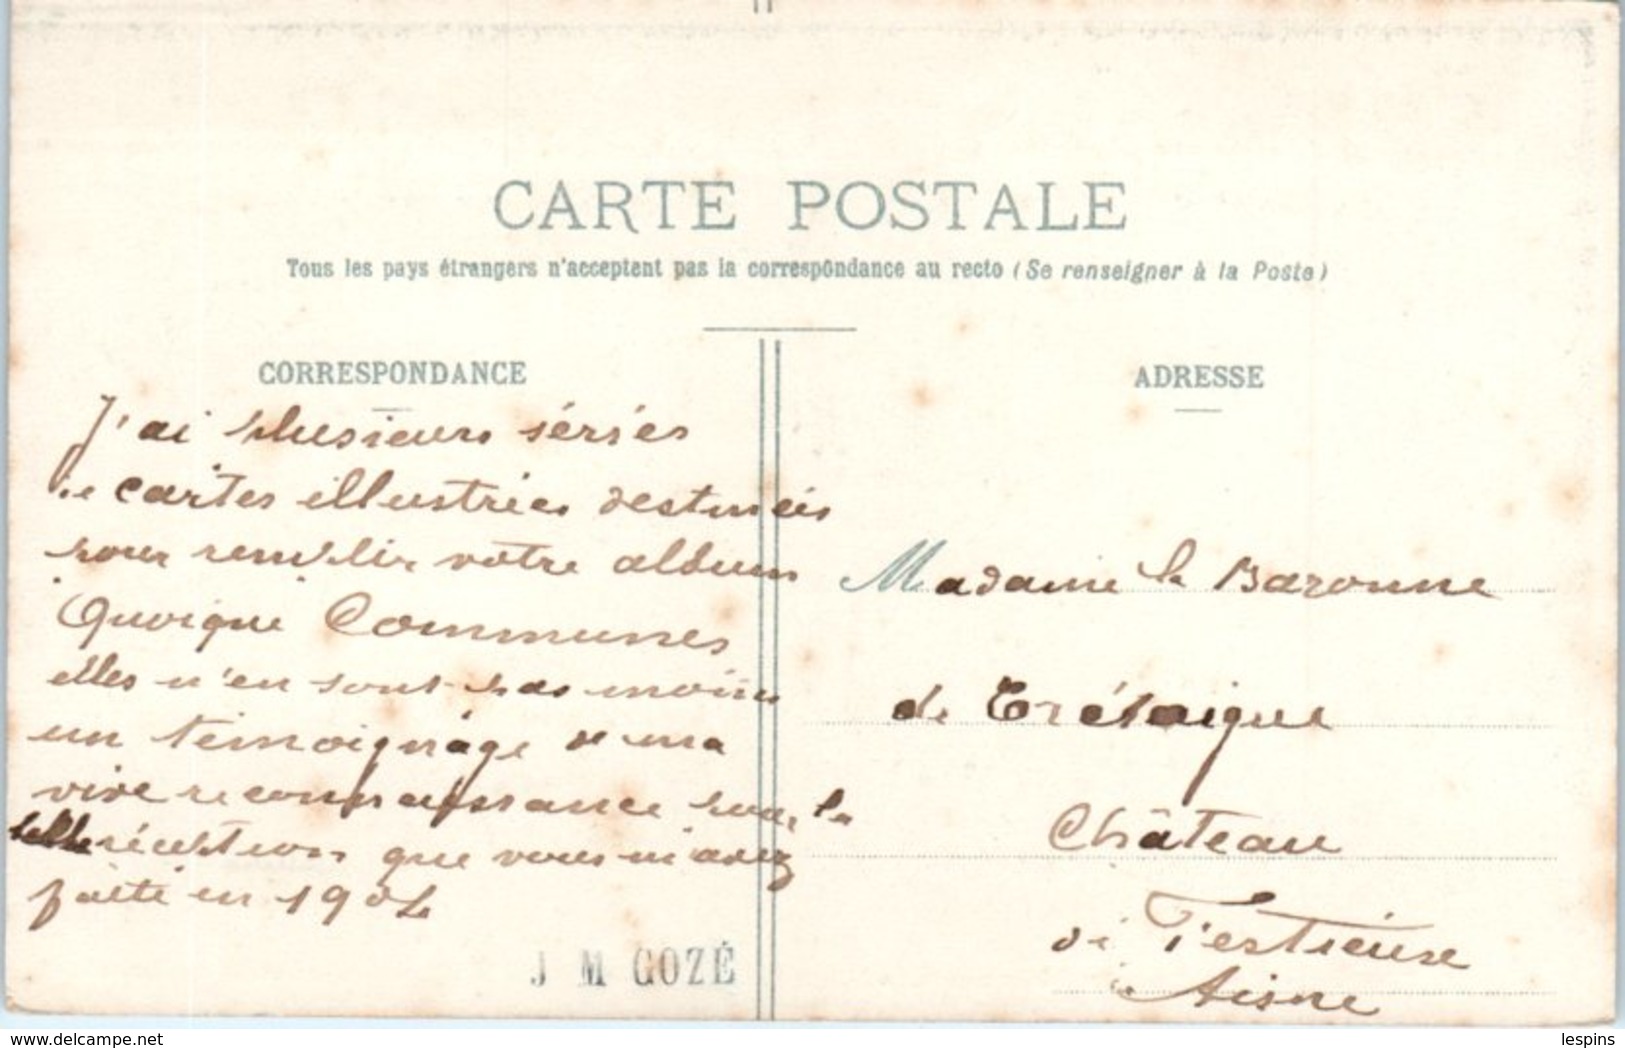 CARTE POSTALE
Tous les pays étrangers n'acceptent pas la correspondance au recto (Se renseigner à la Poste)
CORRESPONDANCE
J'ai plusieurs séries
de cartes illustrées destinées
pour remplir votre album
Quoique Communes
elles n'en sont pas moins
un témoignage de ma
vive reconnaissance pour la
réception que vous m'avez
faite en 1904
J M GOZÉ
ADRESSE
Madame la Baronne
de
Château
de Festieux
Aisne
www.delcampe.net
lespins